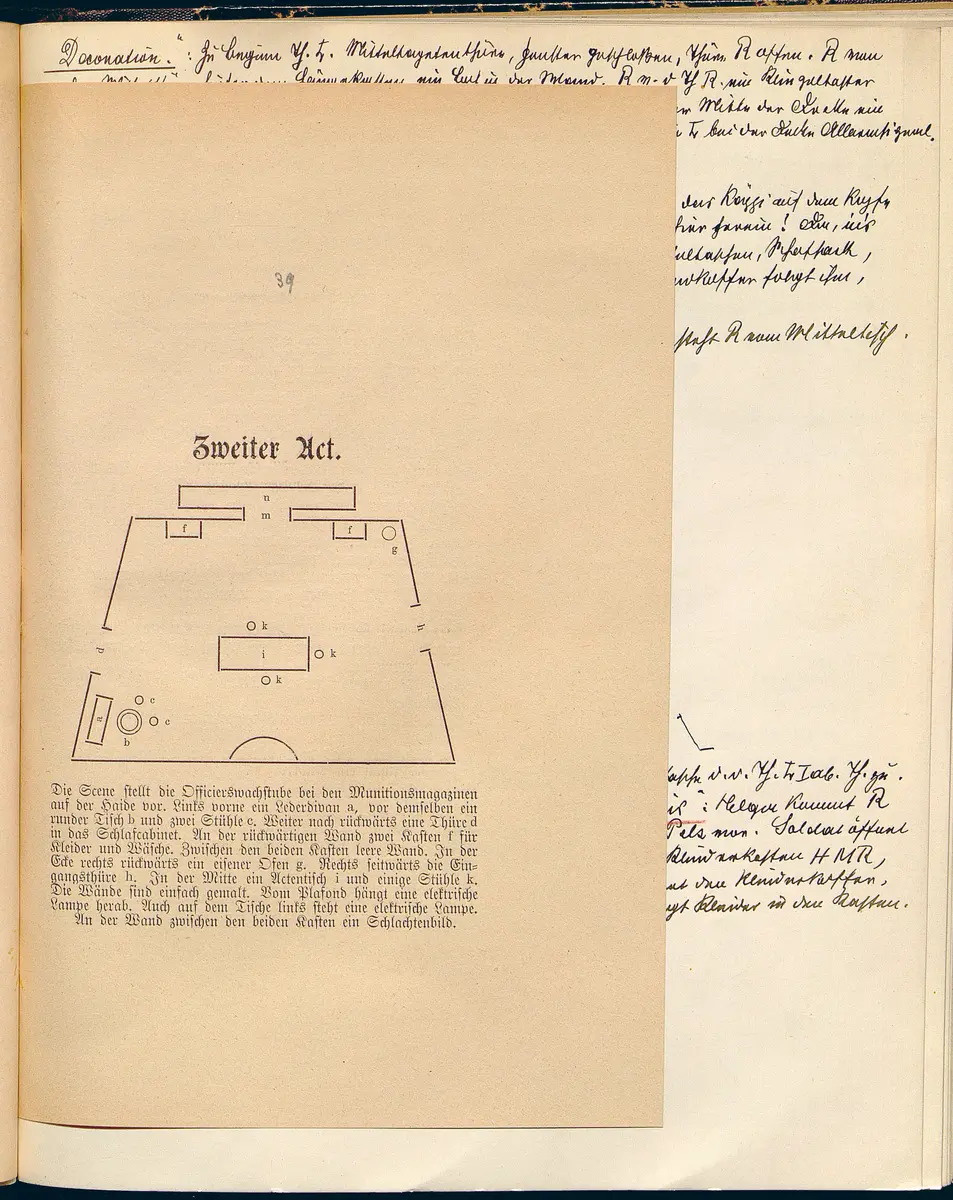 Decoration.": Zu Beginn Th. L. Mitteltapetenthüre, Fenster geschlossen, Thüre R offen. R von
ein Bild in der Wand. R v. d Th R. ein Klingeltaster
Mitte der Decke ein
L bei der Decke Allarmsignal.
das Käppi auf dem Kopfe
hier herein!
folgt ihm,
steht R vom Mitteltisch.
39
Zweiter Act.
n
m
f
f
g
h
d
k
i
k
k
a
c
c
b
Die Scene stellt die Officierswachstube bei den Munitionsmagazinen
auf der Haide vor. Links vorne ein Lederdivan a, vor demselben ein
runder Tisch b und zwei Stühle c. Weiter nach rückwärts eine Thüre d
in das Schlafcabinet. An der rückwärtigen Wand zwei Kasten f für
Kleider und Wäsche. Zwischen den beiden Kasten leere Wand. In der
Ecke rechts rückwärts ein eiserner Ofen g. Rechts seitwärts die Ein-
gangsthüre h. In der Mitte ein Actentisch i und einige Stühle k.
Die Wände sind einfach gemalt. Vom Plafond hängt eine elektrische
Lampe herab. Auch auf dem Tische links steht eine elektrische Lampe.
An der Wand zwischen den beiden Kasten ein Schlachtenbild.
v. d. Th. L I ab. Th. zu.
": Helga kommt R
Pelz vor. Soldat öffnet
Kleiderkasten H M R,
den Kleiderkoffer,
Kleider in den Kasten.